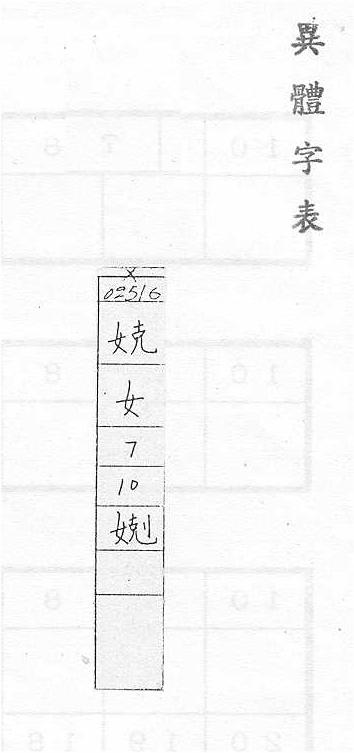 異體字表
×
02516
娔
女
7
10